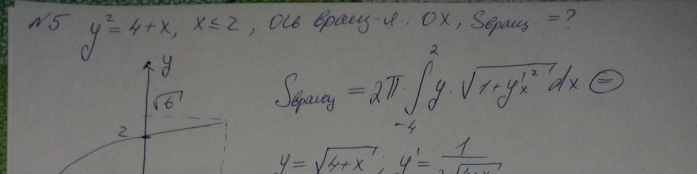 №5 y² = 4+x, x ≤ 2, ось вращ-я: OX, Sвращ. = ?
y
√6
2
Sвращ = 2π · ∫₋₄² y · √(1+y'ₓ²) dx =
y = √(4+x); y' = 1/(2√(4+x))